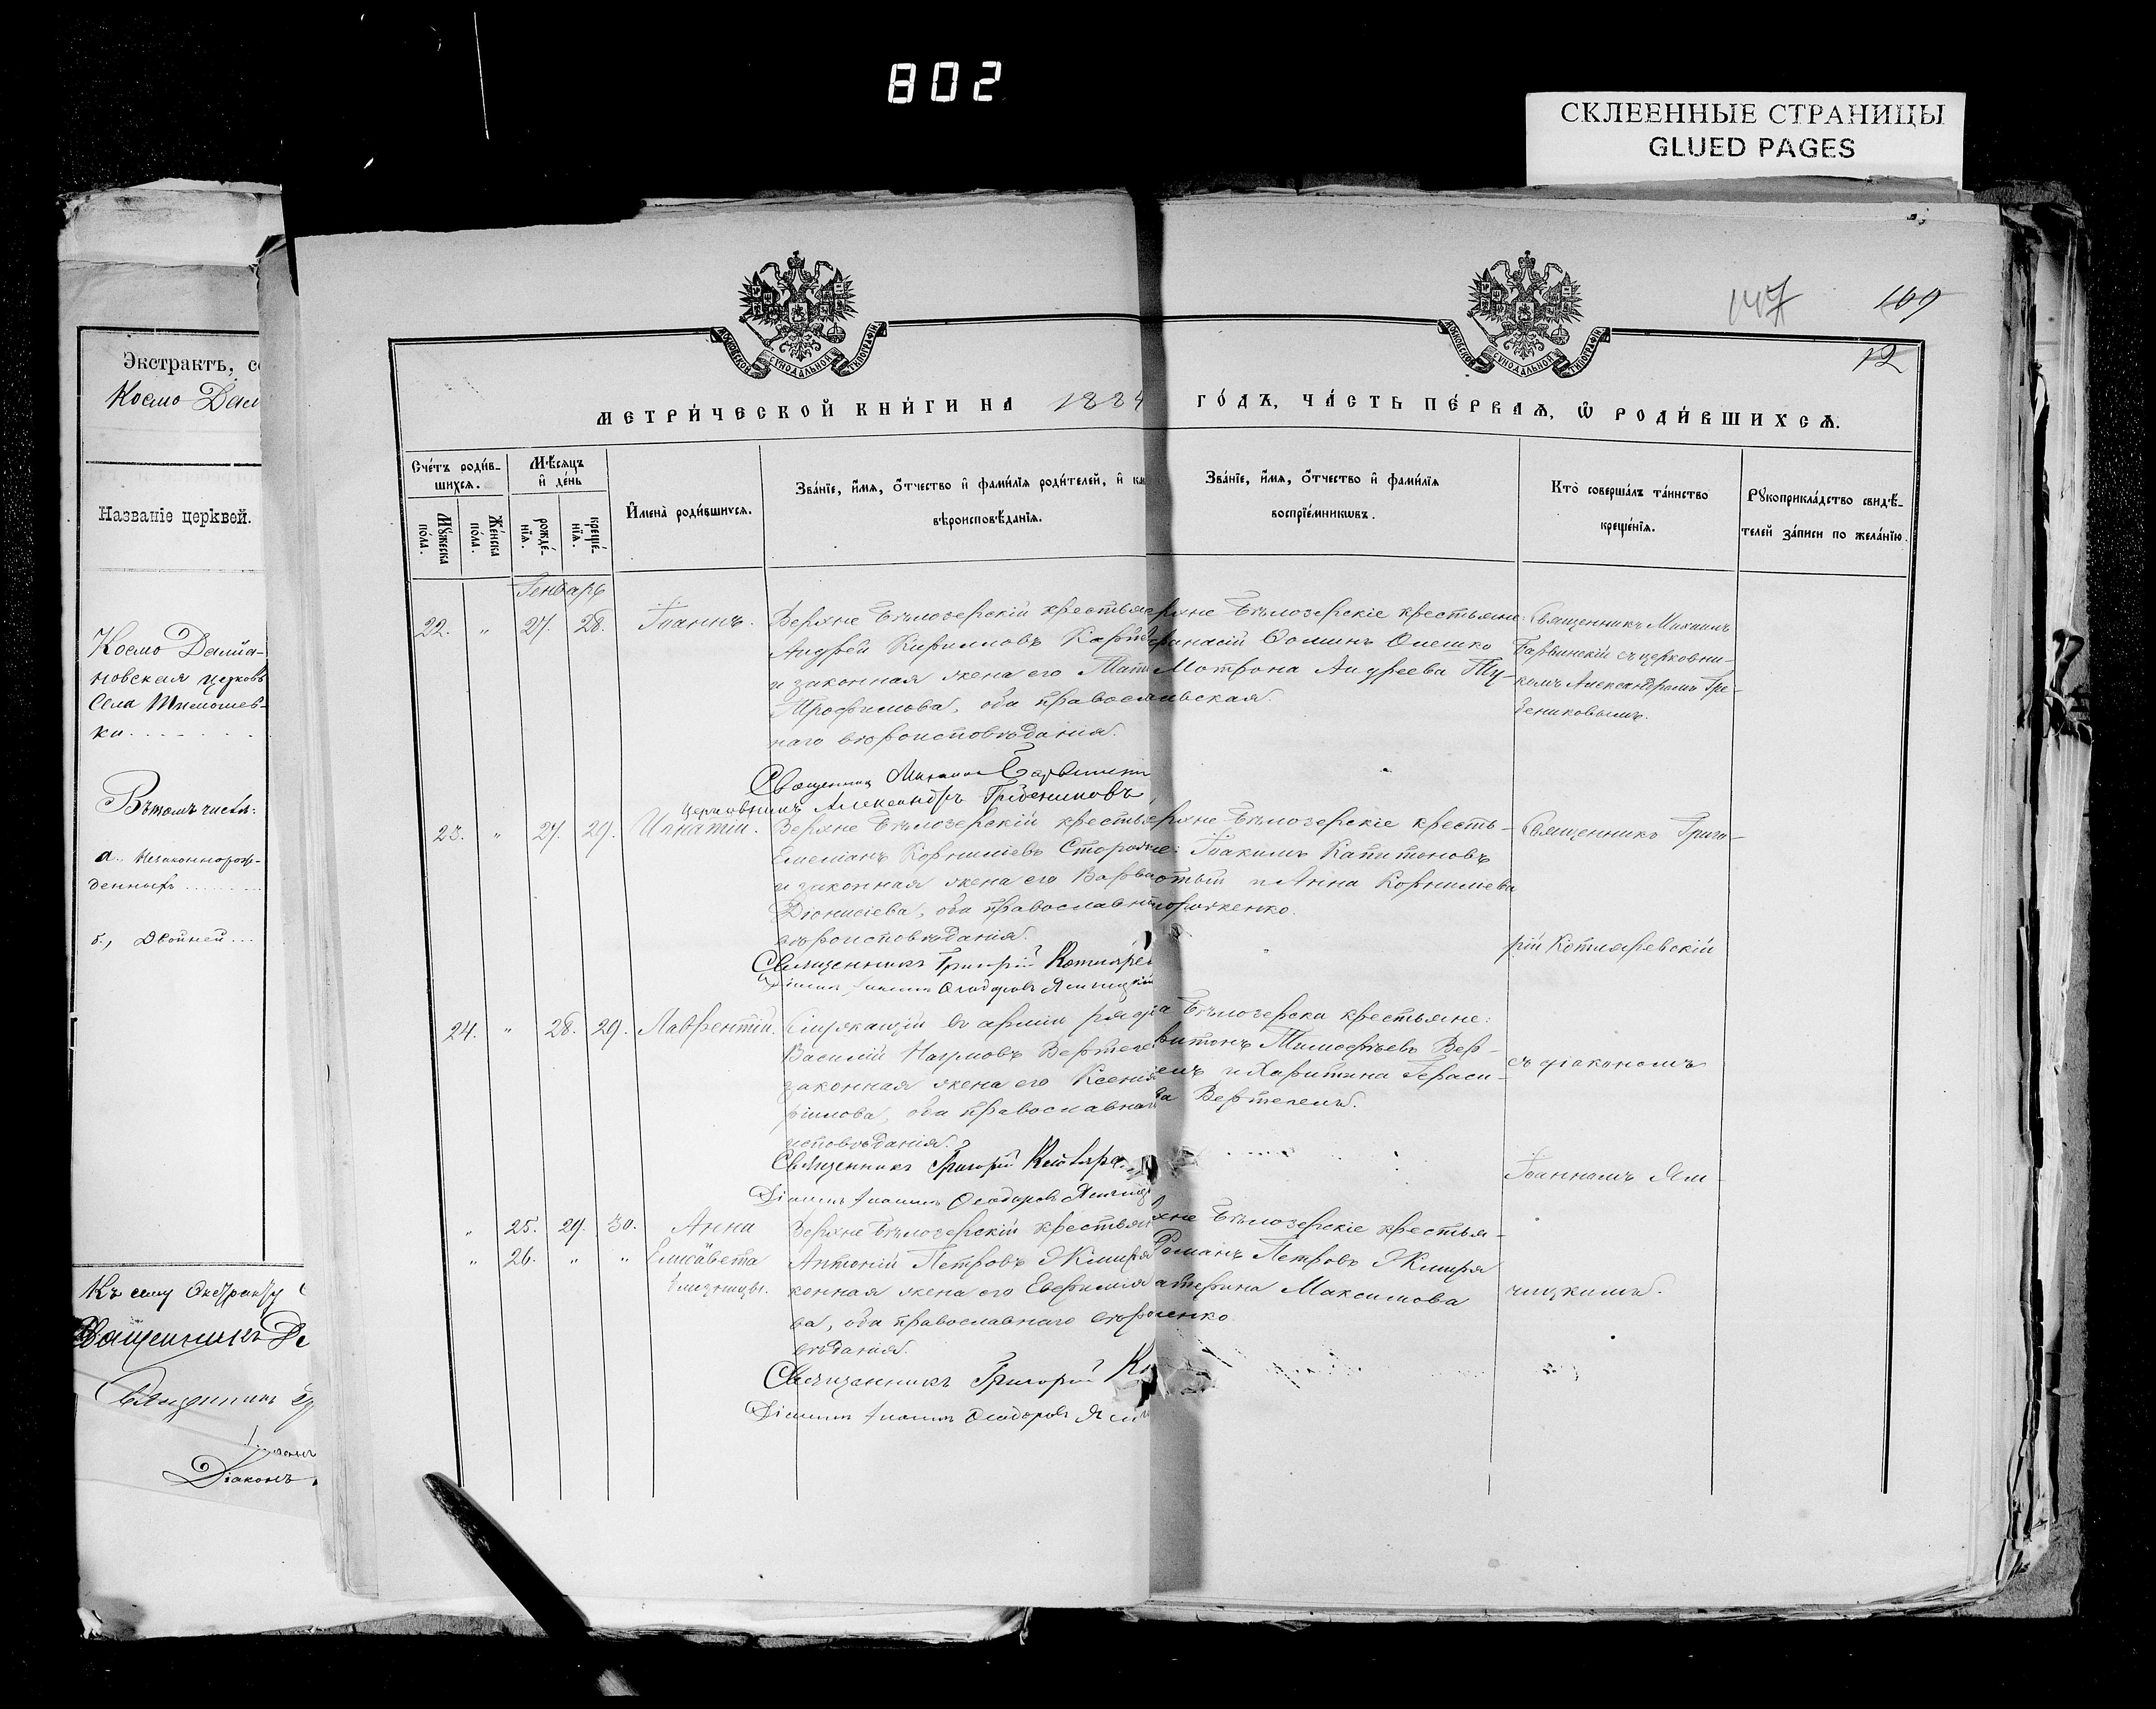 802
СКЛЕЕННЫЕ СТРАНИЦЫ
GLUED PAGES
Экстрактъ, со
Космо Дам
Названіе церквей.
Космо Даміа-
новская церковь
Села Тимошев-
ки
Въ томъ числѣ:
а. Незаконнорож-
денныхъ
б., Двойней
Къ сему Экстракту
Священникъ
Священникъ
Діаконъ
МОСКОВСКОЙ СУНОДАЛЬНОЙ ТИПОГРАФІИ
МОСКОВСКОЙ СУНОДАЛЬНОЙ ТИПОГРАФІИ
147 109
12
МЕТРИ́ЧЕСКОЙ КНИ́ГИ НА 1884 ГО́ДЪ, ЧА́СТЬ ПЕ́РВАѦ, Ѽ РОДИ́ВШИХСѦ.
Сче́тъ роди́в-
шихсѧ.
Мꙋ́жеска
по́ла.
Же́нска
по́ла.
Мѣ́сѧцъ
и҆ де́нь
рожде́-
нїѧ.
креще́-
нїѧ.
И҆мена̀ роди́вшихсѧ.
Зва́нїе, и҆́мѧ, ѻ҆́тчество и҆ фами́лїѧ роди́телей, и҆ ка
вѣроисповѣ́данїѧ.
Зва́нїе, и҆́мѧ, ѻ҆́тчество и҆ фами́лїѧ
воспрїе́мникѡвъ.
Кто̀ соверша́лъ та́инство
креще́нїѧ.
Рꙋкоприкла́дство свидѣ́-
телей за́писи по жела́нїю.
Генварь
22. " 27. 28. Іоаннъ.
Верхне Бѣлозерскій крестья
Андрей Кирилловъ
и законная жена его
Трофимова, оба православ
наго вѣроисповѣданія.
Священникъ Михаилъ
Церковникъ Александръ Гребениковъ
рхне Бѣлозерскіе крестьяне:
фанасій Ѳоминъ Олешко
Мотрона Андреева Ту-
ьская.
Священникъ Михаилъ
съ церковни-
комъ Александромъ Гре-
бениковымъ.
23. " 27. 29. Игнатій.
Верхне Бѣлозерскій крестья
Емеліанъ Корниліевъ
и законная жена его Варва
Діонисіева, оба православна
вѣроисповѣданія.
Священникъ Григорій Котляре
Діаконъ Іоаннъ Ѳеодоровъ
рхне Бѣлозерскіе кресть-
не: Іоакимъ Капитоновъ
и Анна Корниліева
Священникъ Григо-
рій Котляревскій
24. " 28. 29. Лаврентій.
Служащій въ арміи рядо
Василій Наумовъ Вертеле
законная жена его Ксенія
філова, оба православнаго
исповѣданія.
Священникъ Григорій Котляре
Діаконъ Іоаннъ Ѳеодоровъ
а Бѣлозерска крестьяне:
ритонъ Тимофѣевъ Вер-
и Харитина Гераси-
ва Вертелецъ.
съ діакономъ
Іоанномъ Яси-
" 25. 29. 30. Анна
" 26. " " Елисавета
близницы.
Верхне Бѣлозерскій крестьян
Антоній Петровъ Жмиря
конная жена его Евфимія
ва, оба православнаго вѣро
вѣданія.
Священникъ Григорій Ко
Діаконъ Іоаннъ Ѳеодоровъ
хне Бѣлозерскіе крестья-
Романъ Петровъ Жмиря
атерина Максимова
ченко.
чицкимъ.